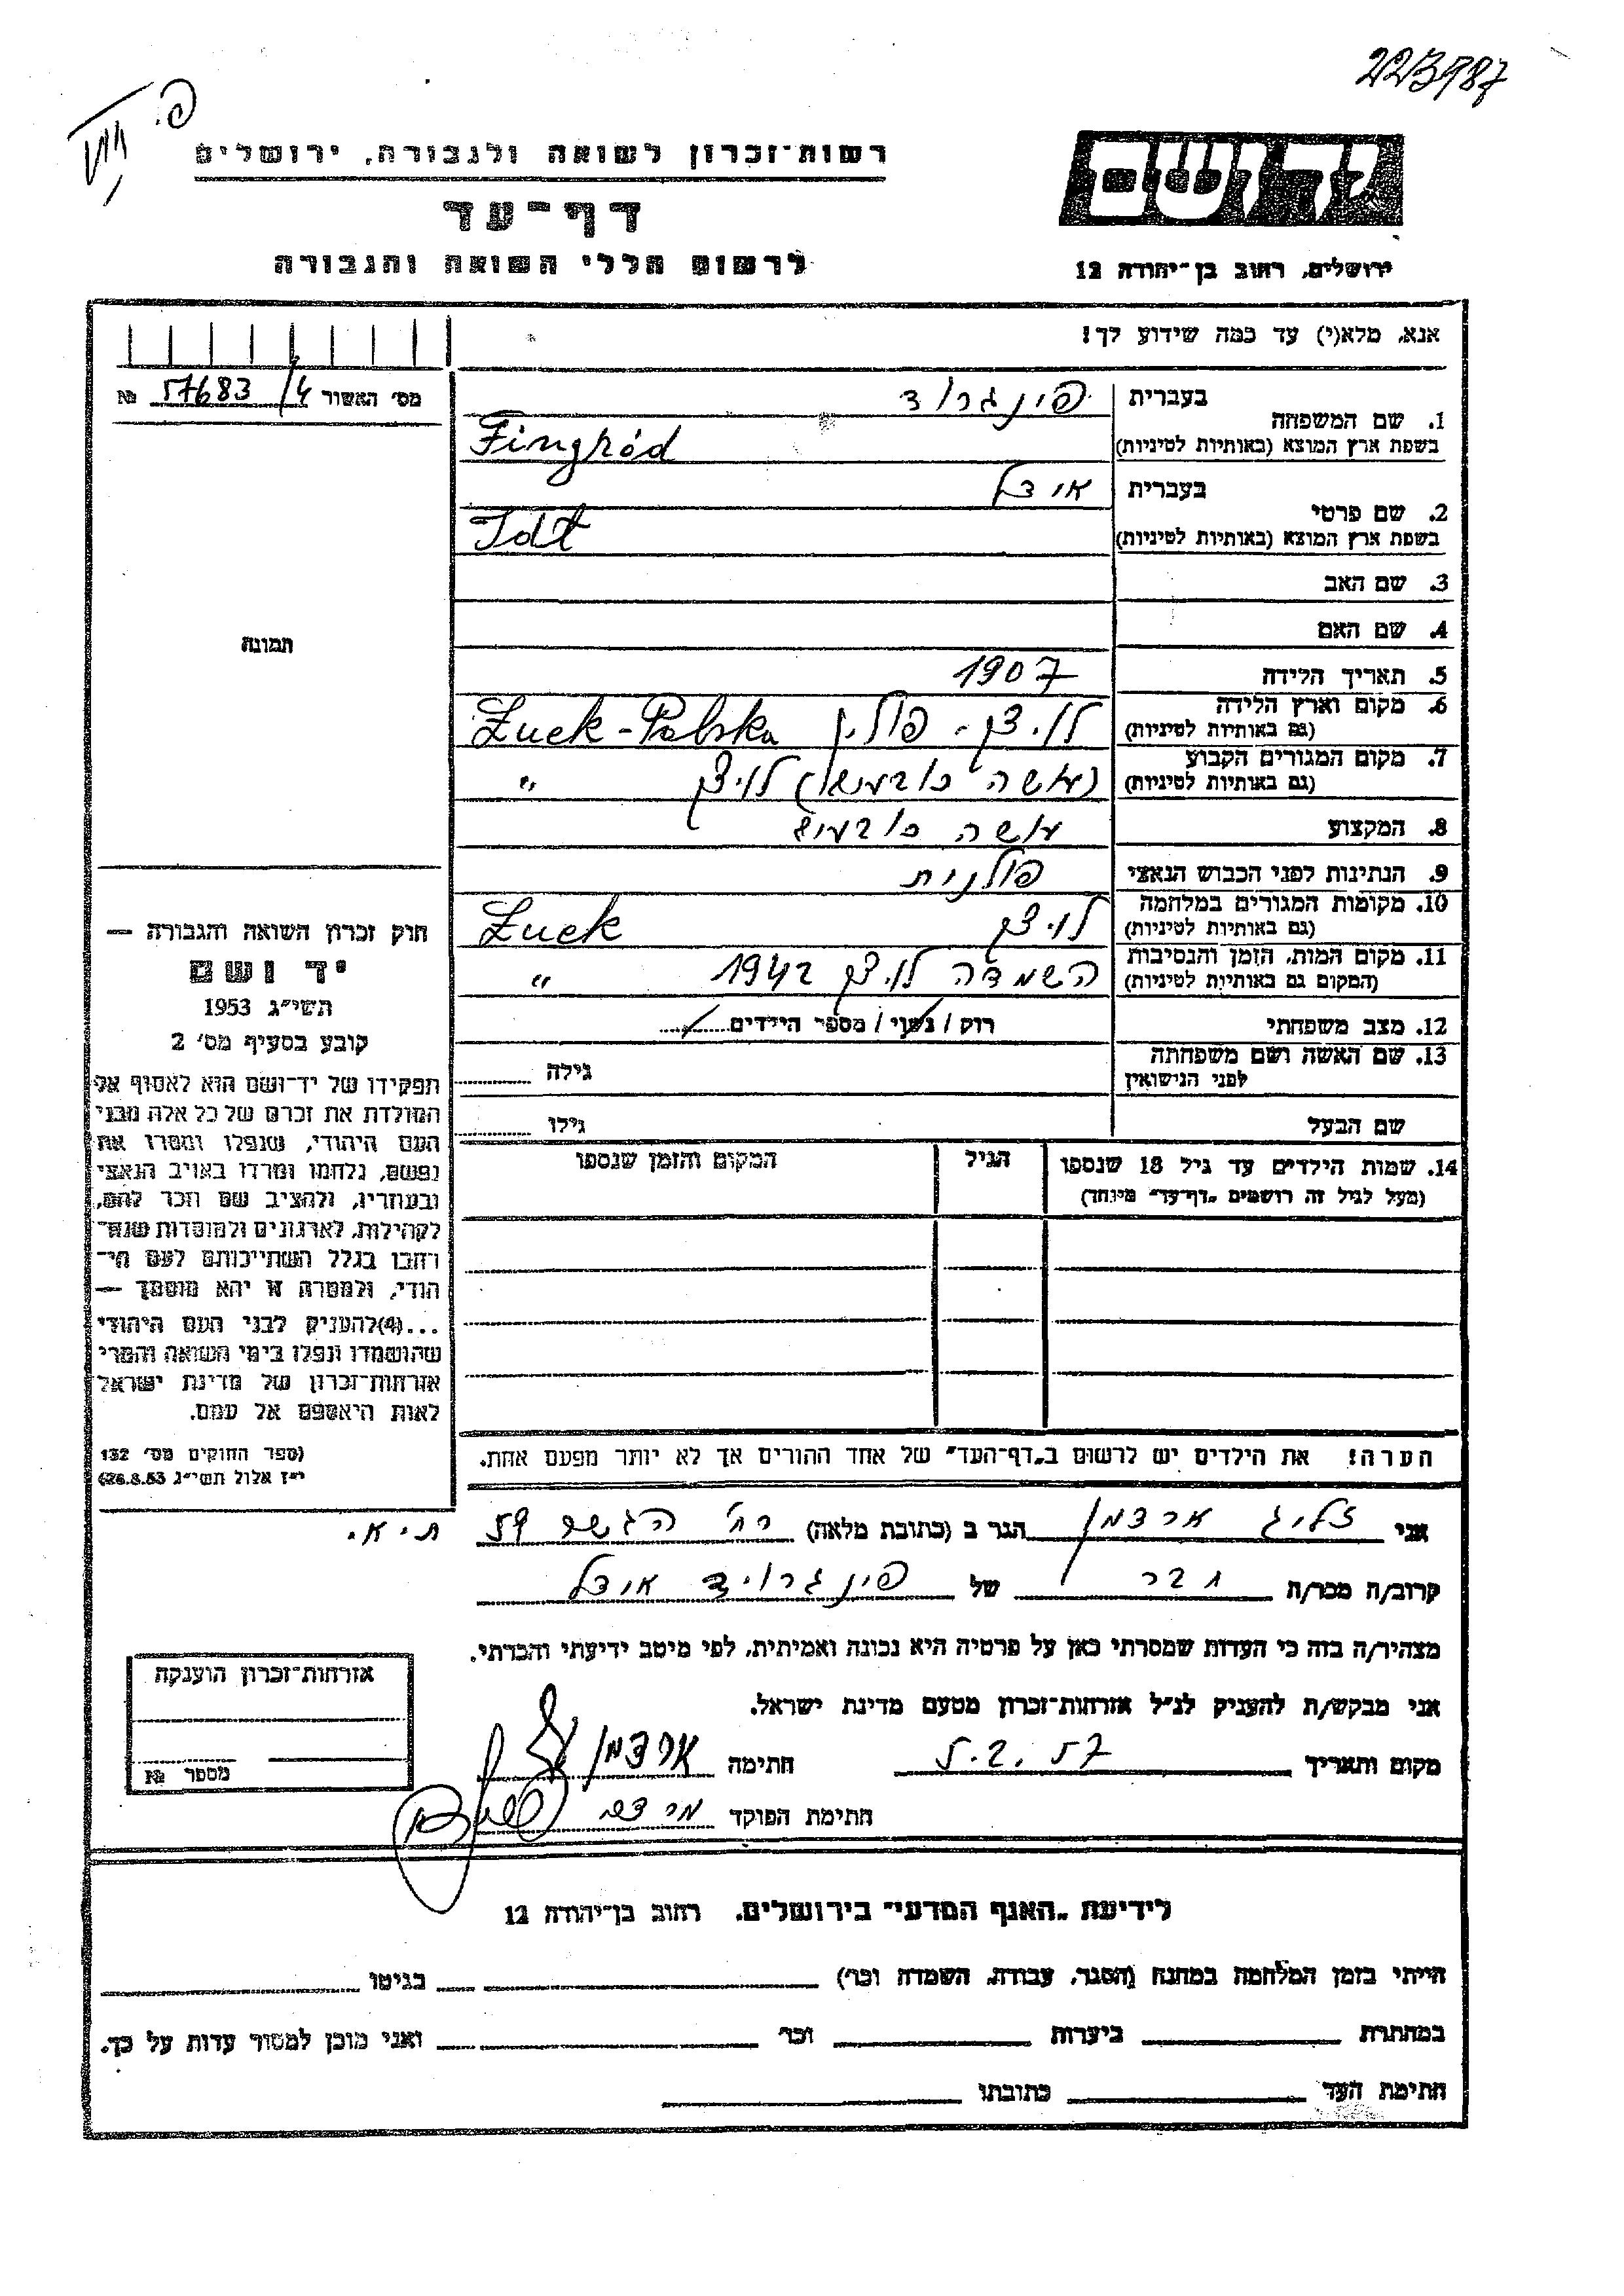 223987
רשות־זכרון לשואה ולגבורה, ירושלים
דף־עד
לרשום חללי השואה והגבורה
יד ושם
ירושלים, רחוב בן־יהודה 12
אנא, מלא(י) עד כמה שידוע לך!
מס' האשור 57683/4 №
תמונה
1. שם המשפחה בעברית פינגרוד
בשפת ארץ המוצא (באותיות לטיניות) Fingród
2. שם פרטי בעברית
בשפת ארץ המוצא (באותיות לטיניות)
3. שם האב
4. שם האם
5. תאריך הלידה 1907
6. מקום וארץ הלידה (גם באותיות לטיניות) לויצק - פולין Łuck-Polska
7. מקום המגורים הקבוע (גם באותיות לטיניות) לויצק "
8. המקצוע
9. הנתינות לפני הכבוש הנאצי פולנית
10. מקומות המגורים במלחמה (גם באותיות לטיניות) לויצק Łuck
11. מקום המות, הזמן והנסיבות (המקום גם באותיות לטיניות) השמדה לויצק 1942 "
12. מצב משפחתי רוק / נשוי / מספר הילדים
13. שם האשה ושם משפחתה לפני הנישואין גילה
שם הבעל גילו
14. שמות הילדים עד גיל 18 שנספו הגיל המקום והזמן שנספו
(מעל לגיל זה רושמים „דף־עד" מיוחד)
הערה! את הילדים יש לרשום ב„דף־העד" של אחד ההורים אך לא יותר מפעם אחת.
חוק זכרון השואה והגבורה —
יד ושם
תשי"ג 1953
קובע בסעיף מס' 2
תפקידו של יד־ושם הוא לאסוף אל
המולדת את זכרם של כל אלה מבני
העם היהודי, שנפלו ומסרו את
נפשם, נלחמו ומרדו באויב הנאצי
ובעוזריו, ולהציב שם וזכר להם,
לקהילות, לארגונים ולמוסדות שנח־
רבו בגלל השתייכותם לעם הי־
הודי, ולמטרה זו יהא מוסמך —
...(4) להעניק לבני העם היהודי
שהושמדו ונפלו בימי השואה והמרי
אזרחות־זכרון של מדינת ישראל
לאות היאספם אל עמם.
(ספר החוקים מס' 132
י"ז אלול תשי"ג 26.8.53)
אני זליג ארדמן הגר ב (כתובת מלאה) רח' הגשר 59 ת״א.
קרוב/ה מכר/ה חבר של פינגרויד
מצהיר/ה בזה כי העדות שמסרתי כאן על פרטיה היא נכונה ואמיתית, לפי מיטב ידיעתי והכרתי.
אני מבקש/ת להעניק לנ"ל אזרחות־זכרון מטעם מדינת ישראל.
מקום ותאריך 5.2.57 חתימה ארדמן
חתימת הפוקד
אזרחות־זכרון הוענקה
מספר №
לידיעת „האגף המדעי" בירושלים. רחוב בן־יהודה 12
הייתי בזמן המלחמה במחנה (הסגר, עבודה, השמדה וכו') בגיטו
במחתרת ביערות וכו' ואני מוכן למסור עדות על כך.
חתימת העד כתובתו